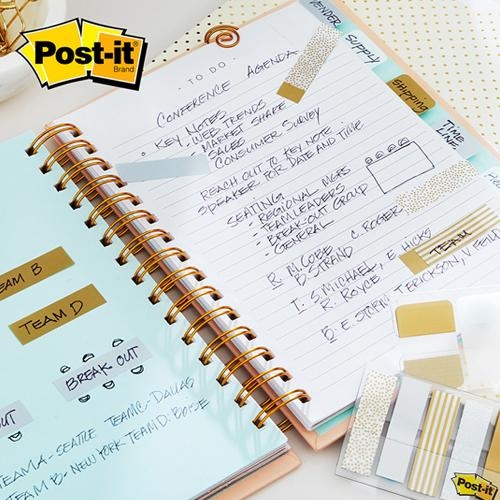 Post-it
Brand
VENDER
SUPPLY
Shipping
TIME
LINE
TO DO
CONFERENCE AGENDA
KEY NOTES
- WEB TRENDS
- MARKET SHARE
- SALES
- CONSUMER SURVEY
REACH OUT TO KEY NOTE
SPEAKER FOR DATE AND TIME
SEATING
- REGIONAL MGRS
- TEAM LEADERS
- BREAK-OUT GROUP
- GENERAL
TEAM
R. M. COBE, C. ROGER
B STRAND
I. S. MICHAEL, E. HICKS
R. ROYCE,
B. E. STORM, T. ERICKSON, V. FELD
EAM B
TEAM D
BREAK OUT
OUT
TEAM A - SEATTLE TEAM C - DALLAS
TEAM B - NEW YORK - TEAM D: BOISE
Post-it